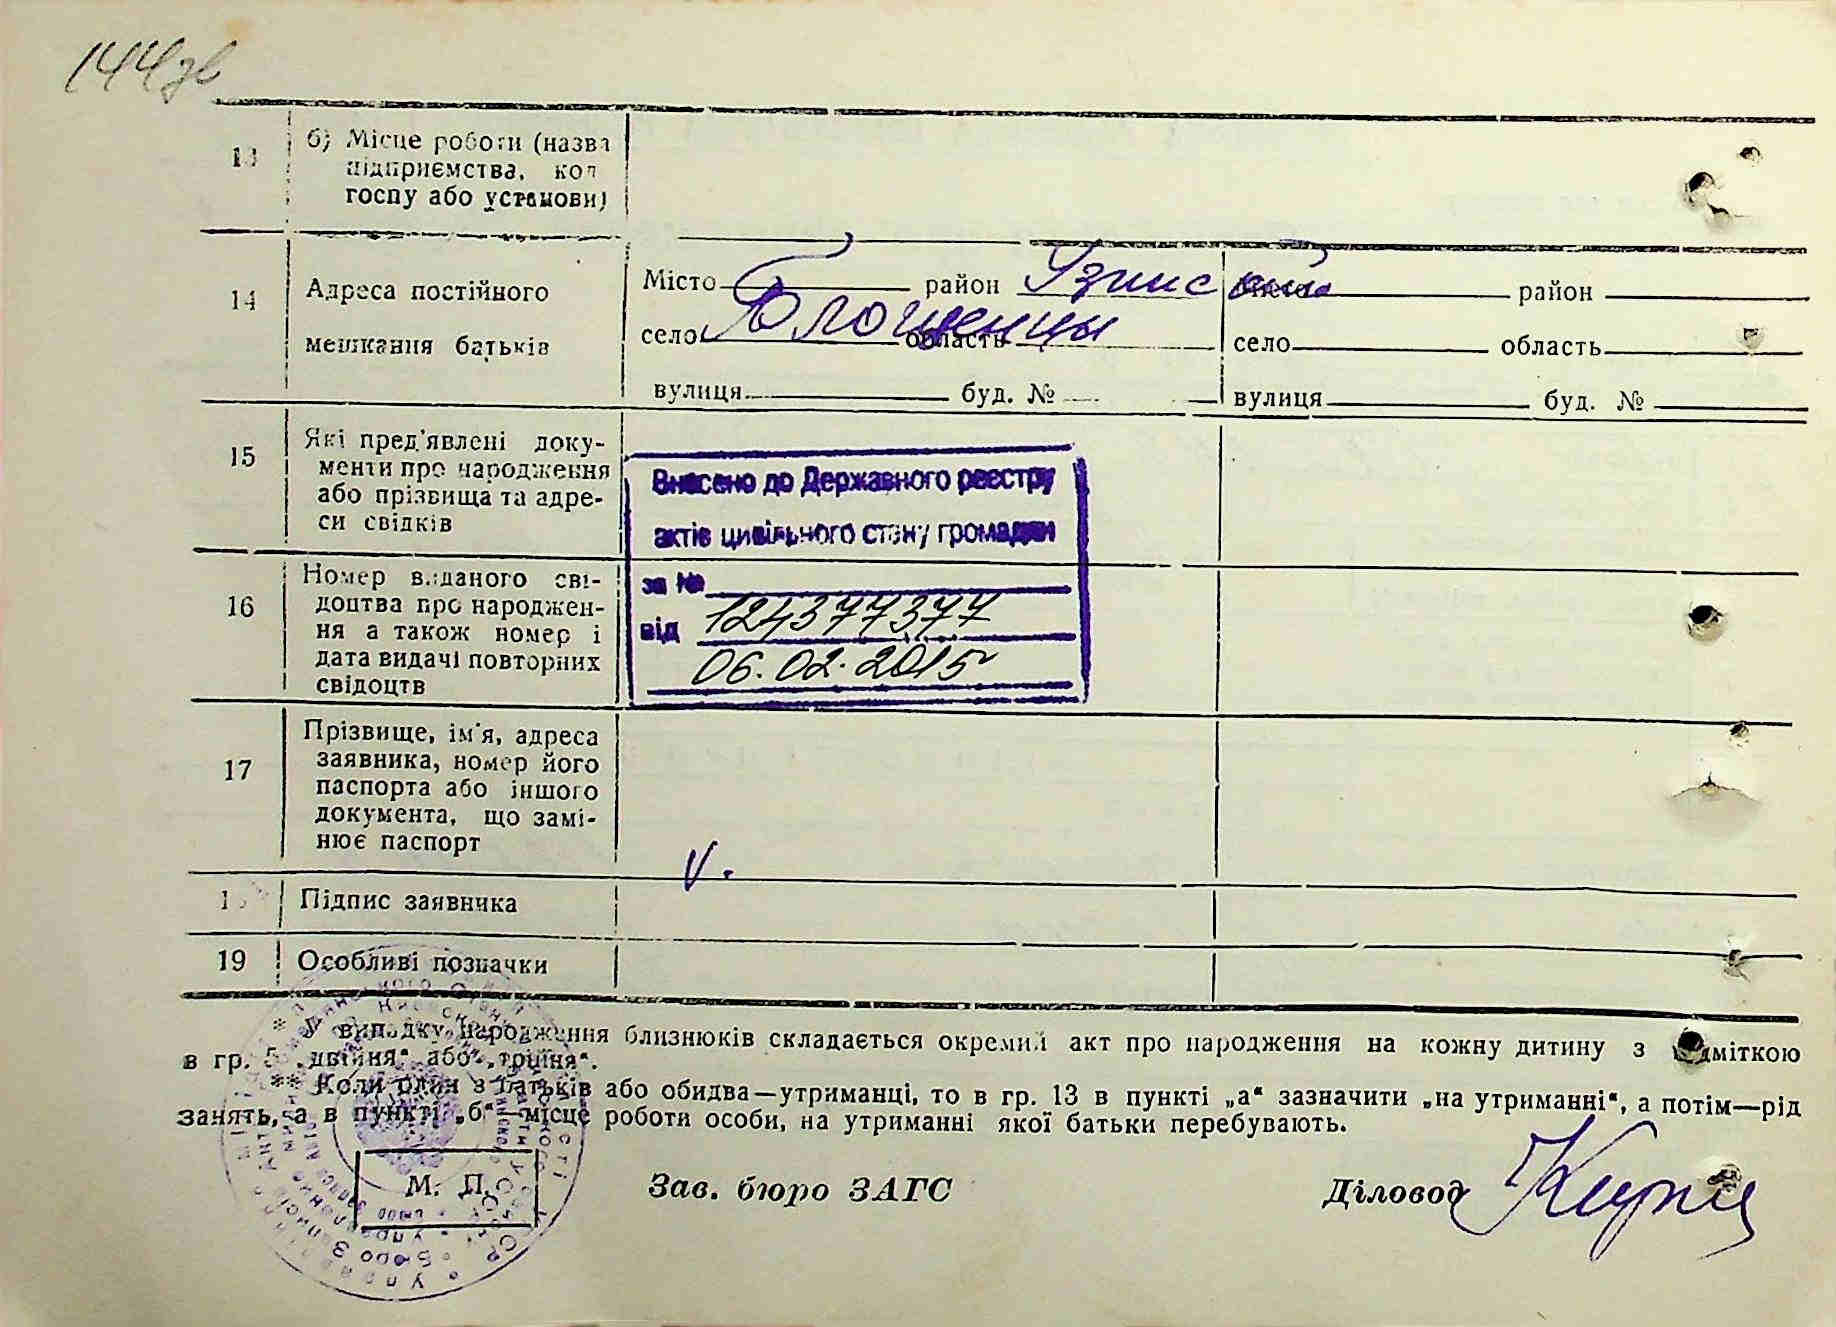 144зв
13 б) Місце роботи (назва
підприємства, кол
госпу або установи)
14 Адреса постійного
мешкання батьків
Місто район Узинский Місто район
село Блощенцы область село область
вулиця буд. № вулиця буд. №
15 Які пред'явлені доку-
менти про народження
або прізвища та адре-
си свідків
Внесено до Державного реєстру
актів цивільного стану громадян
за №
124377377
від
06.02.2015
16 Номер виданого сві-
доцтва про народжен-
ня а також номер і
дата видачі повторних
свідоцтв
17 Прізвище, ім'я, адреса
заявника, номер його
паспорта або іншого
документа, що замі-
нює паспорт
V.
Підпис заявника
19 Особливі позначки
* У випадку народження близнюків складається окремий акт про народження на кожну дитину з відміткою
в гр. 5 „двійня“ або „трійня“.
** Коли один з батьків або обидва—утриманці, то в гр. 13 в пункті „а“ зазначити „на утриманні“, а потім—рід
занять, а в пункті „б“—місце роботи особи, на утриманні якої батьки перебувають.
М. П.
Зав. бюро ЗАГС
Діловод